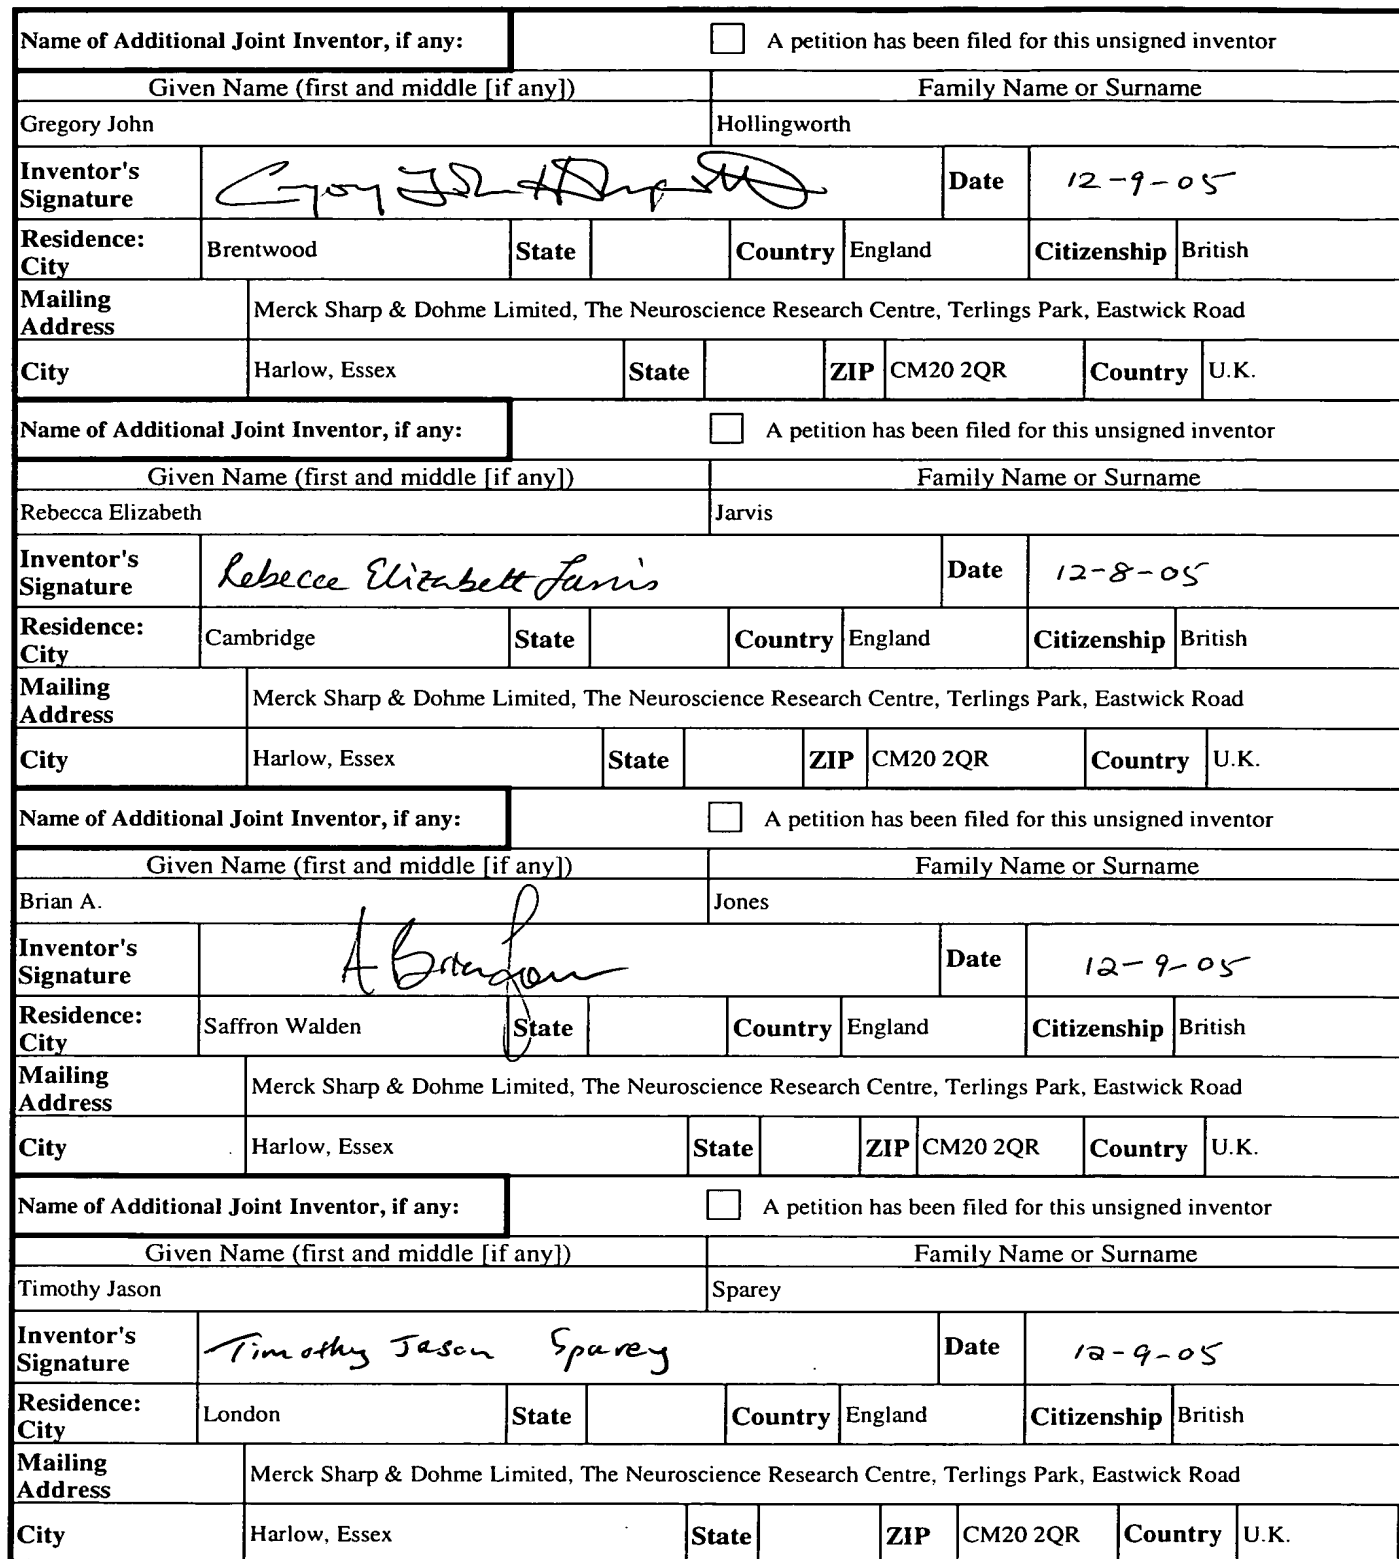 Name of Additional Joint Inventor, if any: A petition has been filed for this unsigned inventor
Given Name (first and middle [if any]) Family Name or Surname
Gregory John Hollingworth
Inventor's Signature Date 12-9-05
Residence: City Brentwood State Country England Citizenship British
Mailing Address Merck Sharp & Dohme Limited, The Neuroscience Research Centre, Terlings Park, Eastwick Road
City Harlow, Essex State ZIP CM20 2QR Country U.K.
Name of Additional Joint Inventor, if any: A petition has been filed for this unsigned inventor
Given Name (first and middle [if any]) Family Name or Surname
Rebecca Elizabeth Jarvis
Inventor's Signature Rebecca Elizabeth Jarvis Date 12-8-05
Residence: City Cambridge State Country England Citizenship British
Mailing Address Merck Sharp & Dohme Limited, The Neuroscience Research Centre, Terlings Park, Eastwick Road
City Harlow, Essex State ZIP CM20 2QR Country U.K.
Name of Additional Joint Inventor, if any: A petition has been filed for this unsigned inventor
Given Name (first and middle [if any]) Family Name or Surname
Brian A. Jones
Inventor's Signature Date 12-9-05
Residence: City Saffron Walden State Country England Citizenship British
Mailing Address Merck Sharp & Dohme Limited, The Neuroscience Research Centre, Terlings Park, Eastwick Road
City Harlow, Essex State ZIP CM20 2QR Country U.K.
Name of Additional Joint Inventor, if any: A petition has been filed for this unsigned inventor
Given Name (first and middle [if any]) Family Name or Surname
Timothy Jason Sparey
Inventor's Signature Timothy Jason Sparey Date 12-9-05
Residence: City London State Country England Citizenship British
Mailing Address Merck Sharp & Dohme Limited, The Neuroscience Research Centre, Terlings Park, Eastwick Road
City Harlow, Essex State ZIP CM20 2QR Country U.K.